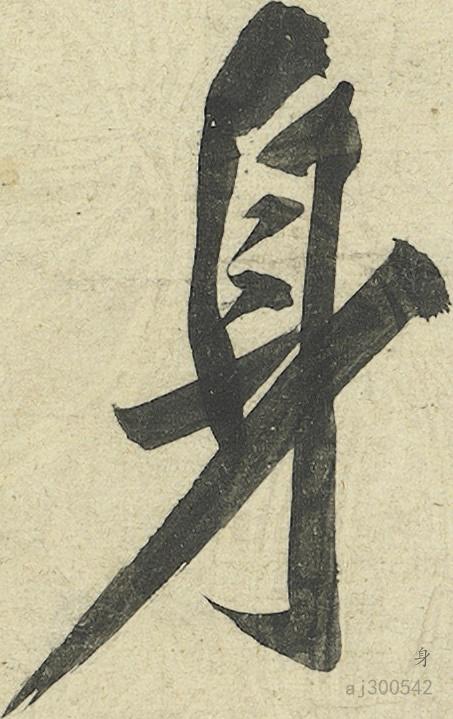 身
身
aj300542